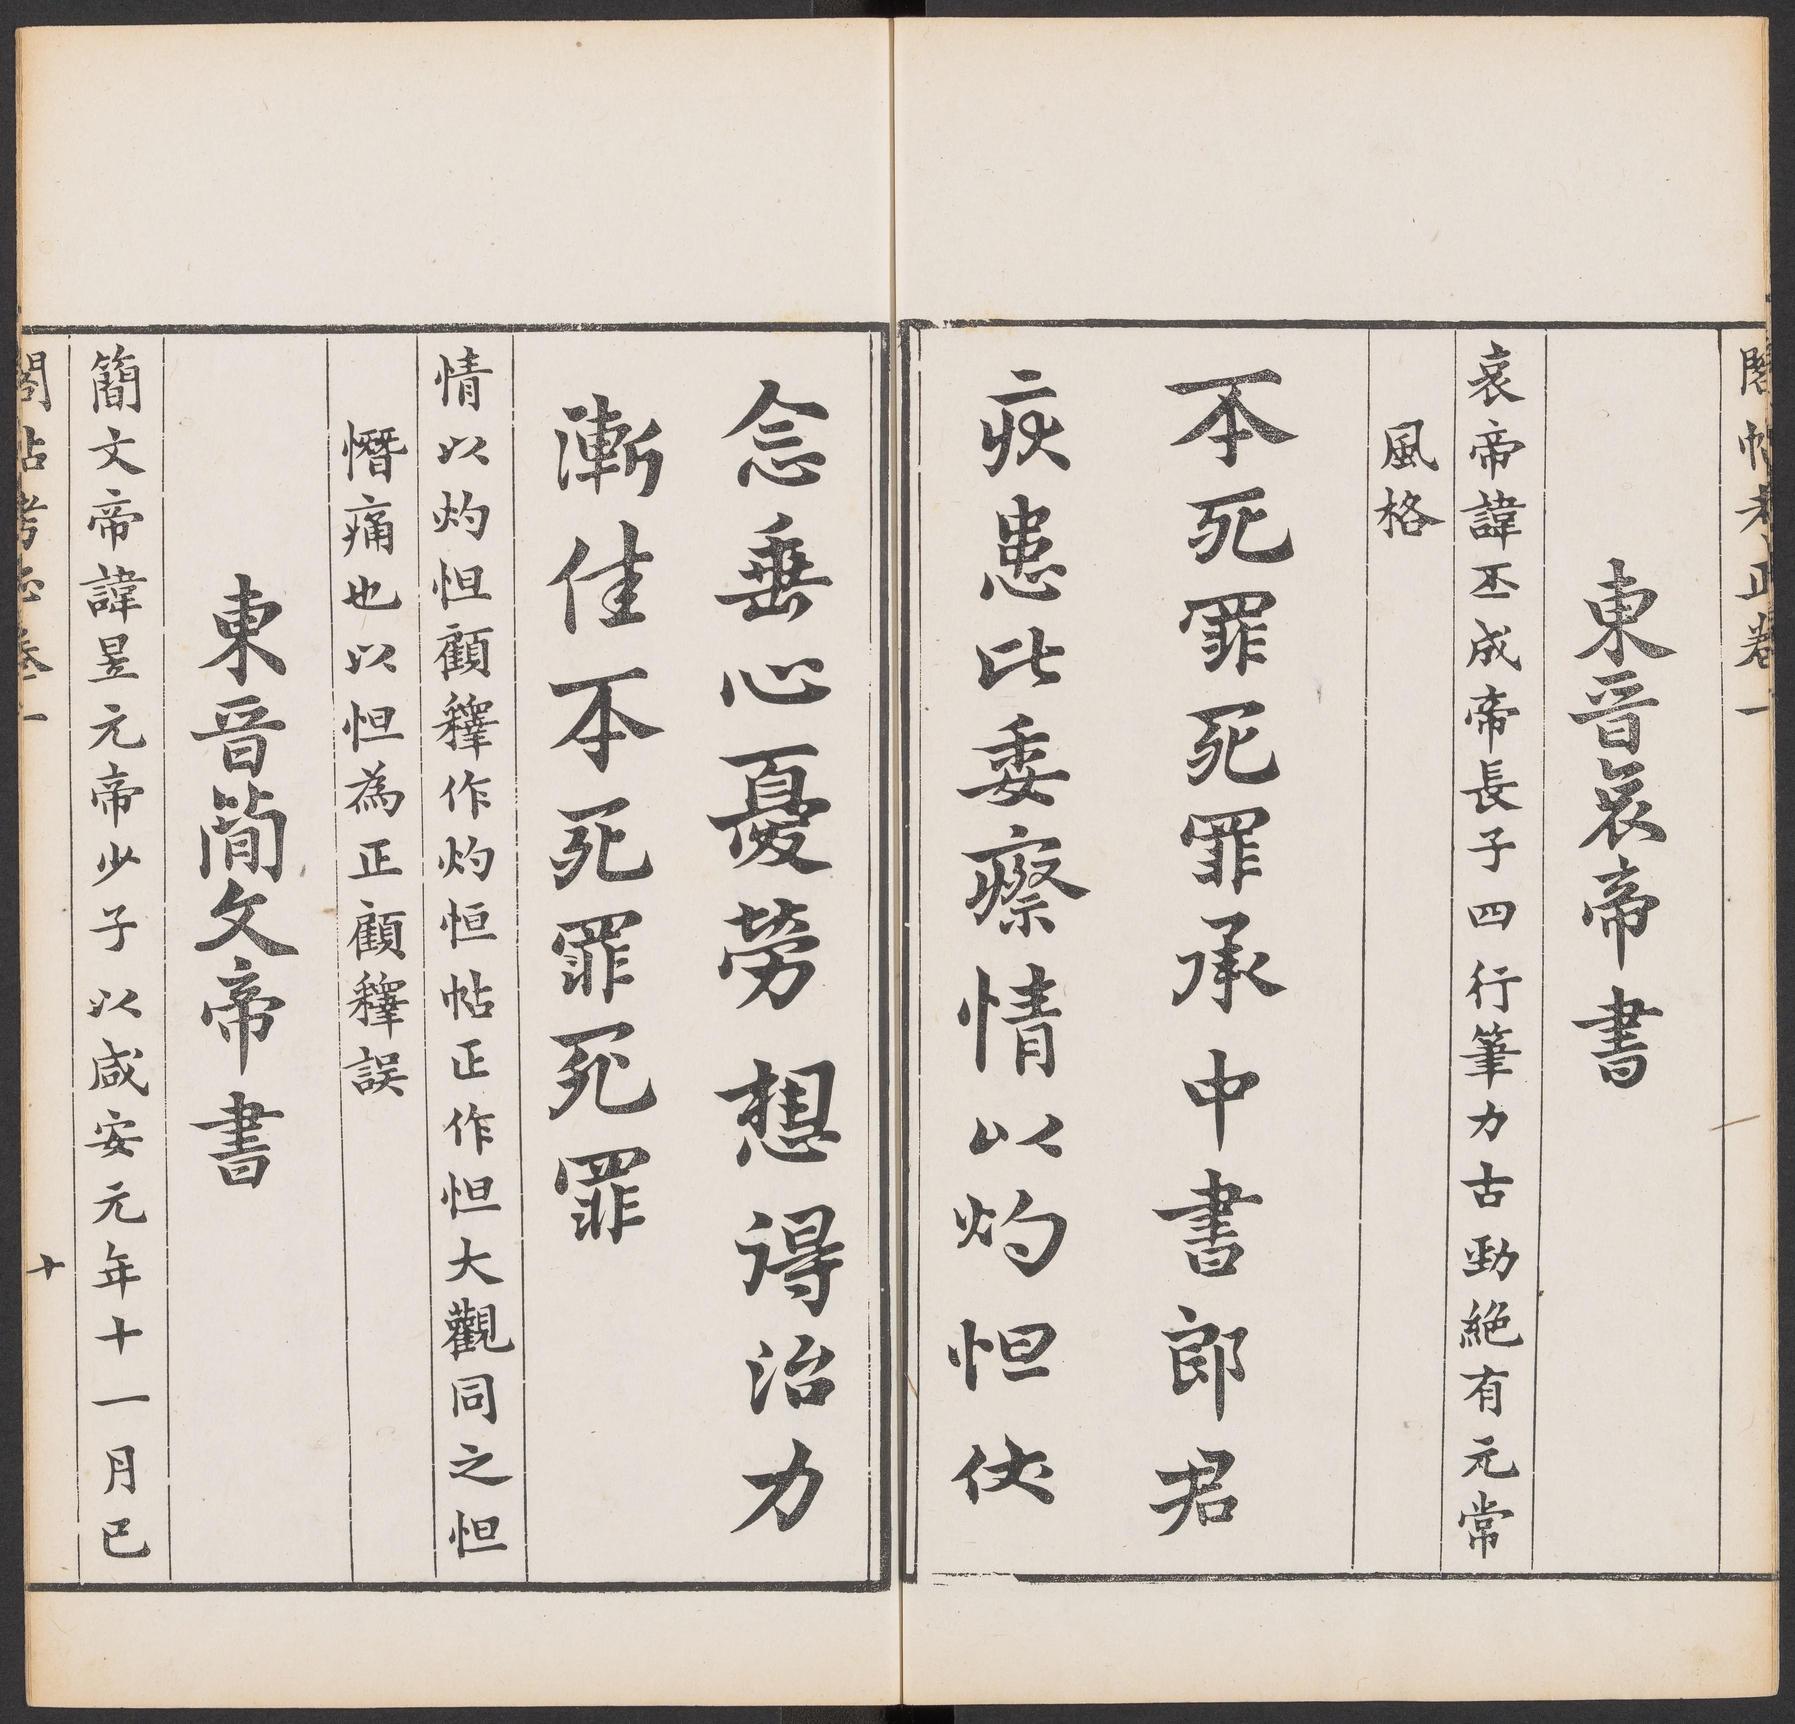 閣帖考正卷一
東晉哀帝書
哀帝諱丕成帝長子四行筆力古勁絕有元常
風格
不死罪死罪承中書郎君
疢患比委瘵情以灼怛伏
念垂心憂勞想得治力
漸佳不死罪死罪
情以灼怛顧釋作灼恒帖正作怛大觀同之怛
憯痛也以怛為正顧釋誤
東晉簡文帝書
簡文帝諱昱元帝少子以咸安元年十一月已
閣帖考正卷一
十